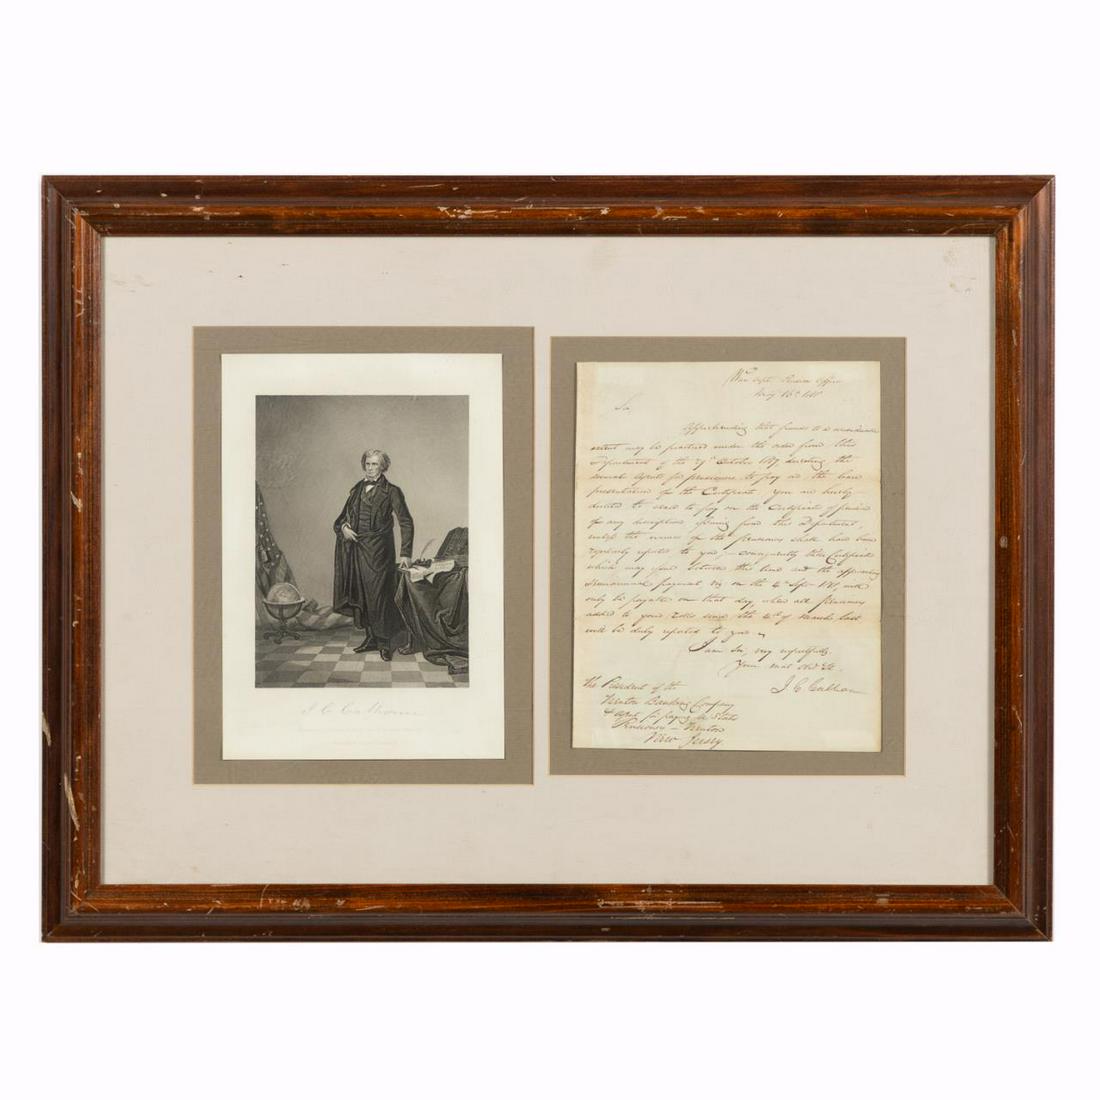 J. C. Calhoun
War Dept. Pension Office
May 16th
Sir
Apprehending that frauds to a considerable
extent may be practised under the order from this
Department of the 29th October 1817, directing the
several Agents for pensioners to pay on the bare
presentation of the Certificate, you are hereby
directed to cease to pay on the Certificate of pension
for any description issuing from this Department,
unless the names of the Pensioners shall have been
regularly reported to you, – consequently those Certificates
which may issue between this time and the approaching
Semiannual payment viz on the 4th Sepr will
only be payable on that day, when all Pensioners
added to your Rolls since the 4th of March last
will be duly reported to you –
I am Sir, very respectfully,
Your most Obt St.
J. C. Calhoun
The President of the
Trenton Banking Company
& Agent for paying U. States
Pensioners – Trenton
New Jersey